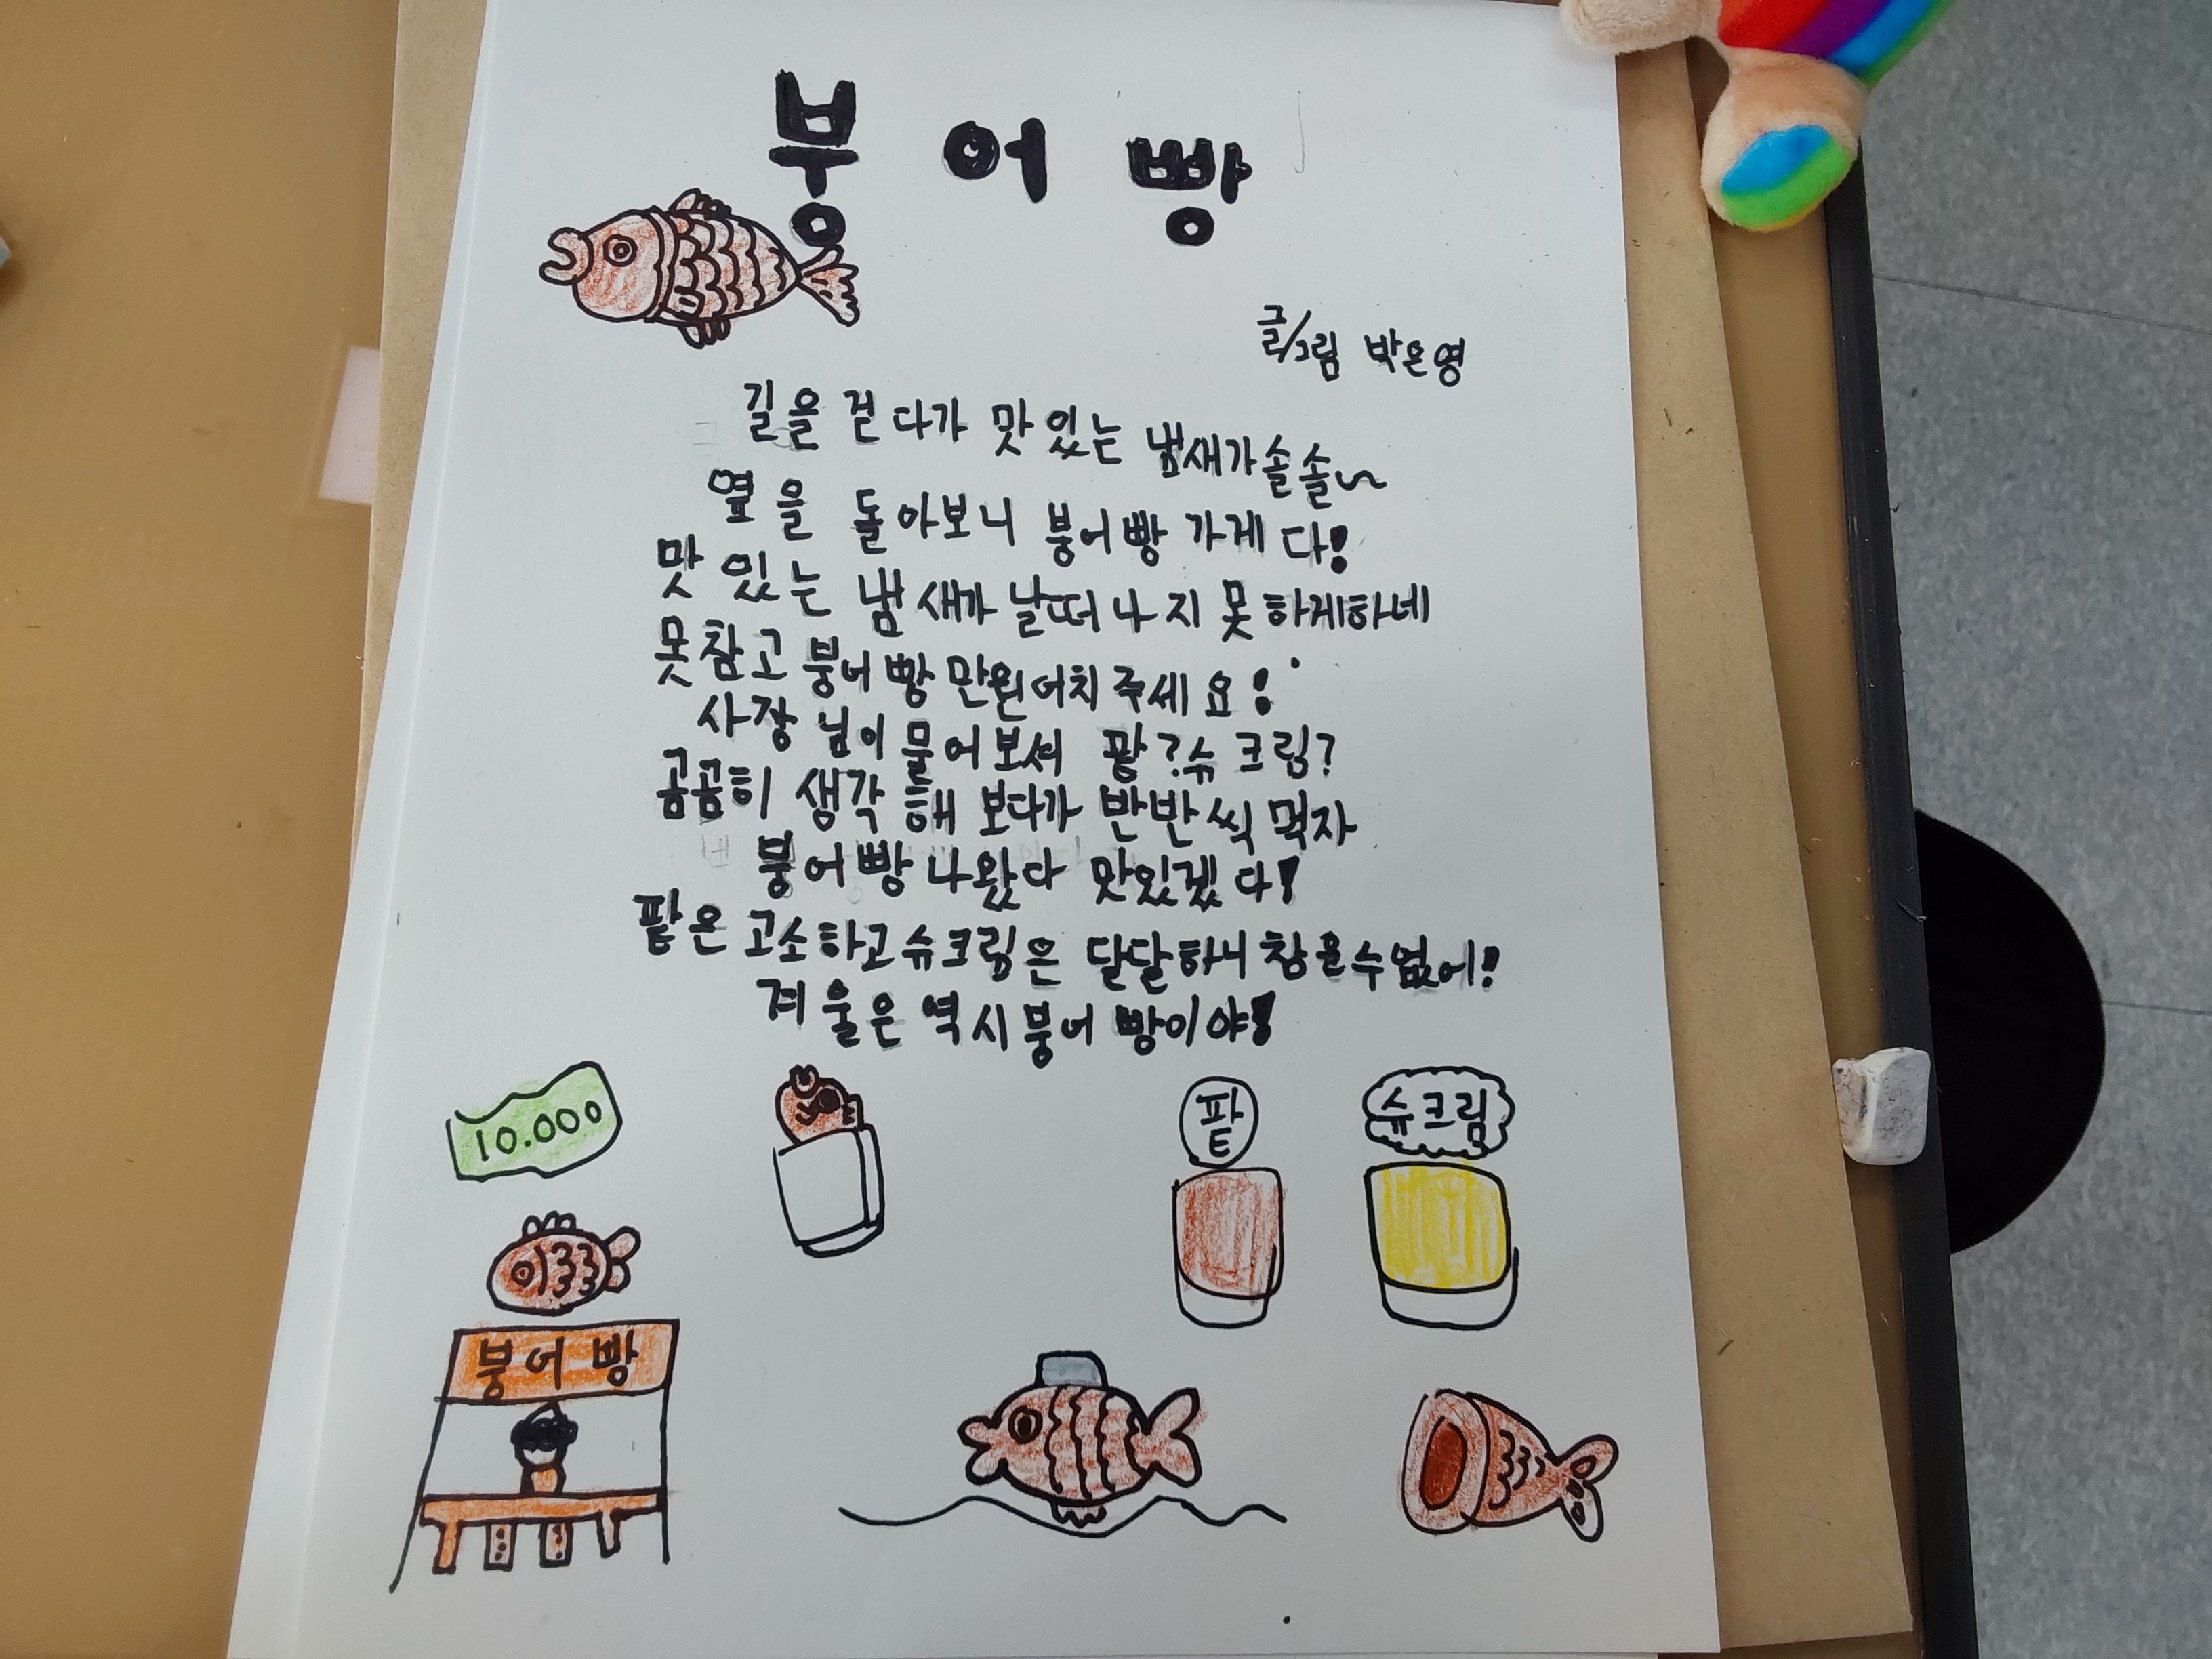 붕어빵
글/그림 박은영
길을 걷다가 맛있는 냄새가솔솔~
옆을 돌아보니 붕어빵 가게다!
맛있는 냄새가 날떠나지 못하게하네
못참고 붕어빵 만원어치 주세요!
사장님이 물어보셔 팥?슈크림?
곰곰히 생각해 보다가 반반씩 먹자
붕어빵 나왔다 맛있겠다!
팥은 고소하고 슈크림은 달달하니 참을수 없어!
겨울은 역시 붕어빵이야!
10.000
팥
슈크림
붕어빵